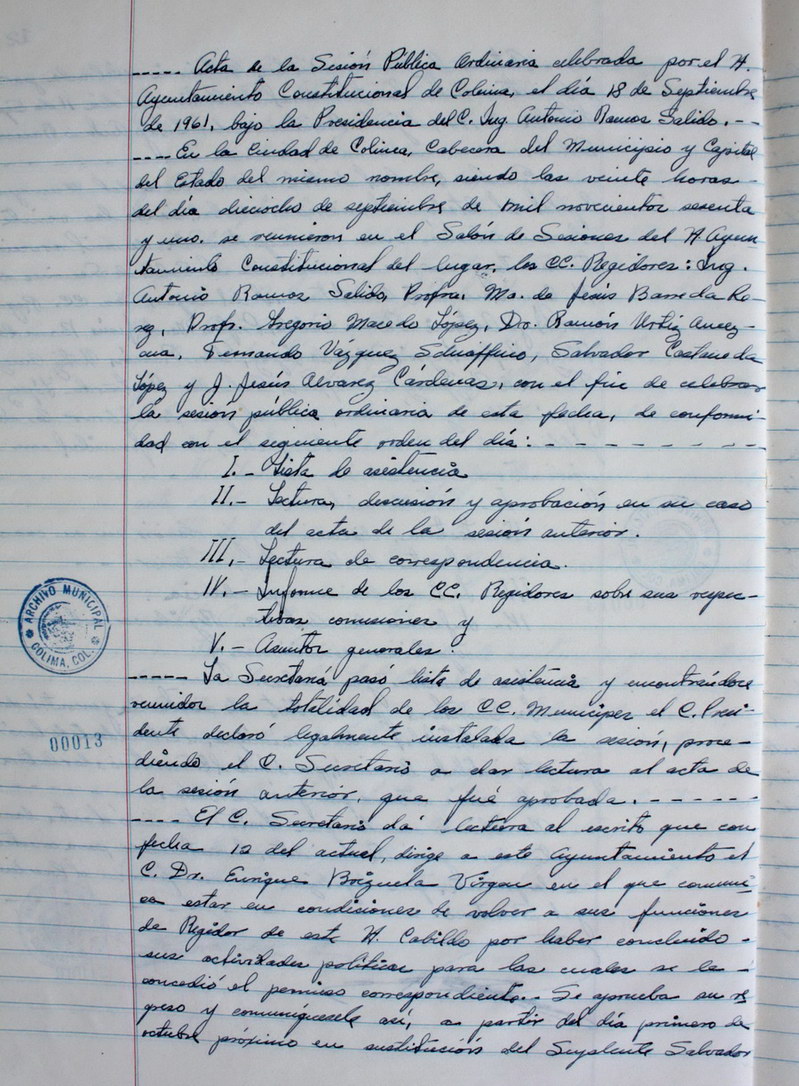 ----- Acta de la Sesión Pública Ordinaria celebrada por el H.
Ayuntamiento Constitucional de Colima, el día 18 de Septiembre
de 1961, bajo la Presidencia del C. Ing. Antonio Ramos Salido. --
---- En la Ciudad de Colima, Cabecera del Municipio y Capital
del Estado del mismo nombre, siendo las veinte horas -
del día dieciocho de septiembre de mil novecientos sesenta
y uno. se reunieron en el Salón de Sesiones del H. Ayun
tamiento Constitucional del lugar, los CC. Regidores: Ing.
Antonio Ramos Salido, Profra. Ma. de Jesús Barreda Ro-
, Profr. Gregorio Macedo López, Dr. Ramón Urtiz
Fernando Vázquez Schiaffino, Salvador Castaneda
López y J. Jesús Alvarez Cárdenas, con el fin de celebrar
la sesión pública ordinaria de esta fecha, de conformi
dad con el siguiente orden del día: - - - - - - - - -
I.- Lista de asistencia
II.- Lectura, discusión y aprobación en su caso
del acta de la sesión anterior.
III.- Lectura de correspondencia.
IV.- Informe de los CC. Regidores sobre sus respec-
tivas comisiones y
V.- Asuntos generales.
----- La Secretaría pasó lista de asistencia y encontrándose
reunidos la totalidad de los CC. Munícipes el C. Presi-
dente declaró legalmente instalada la sesión, proce-
diendo el C. Secretario a dar lectura al acta de
la sesión anterior, que fué aprobada. - - - - - -
---- El C. Secretario dá lectura al escrito que con
fecha 12 del actual, dirige a este Ayuntamiento el
C. Dr. Enrique Brizuela Virgen en el que comuni
ca estar en condiciones de volver a sus funciones
de Regidor de este H. Cabildo por haber concluido -
sus actividades políticas para las cuales se le -
concedió el permiso correspondiente.- Se aprueba su re
greso y comuníquesele así, a partir del día primero de
octubre próximo en sustitución del Suplente Salvador
ARCHIVO MUNICIPAL
COLIMA, COL.
00013